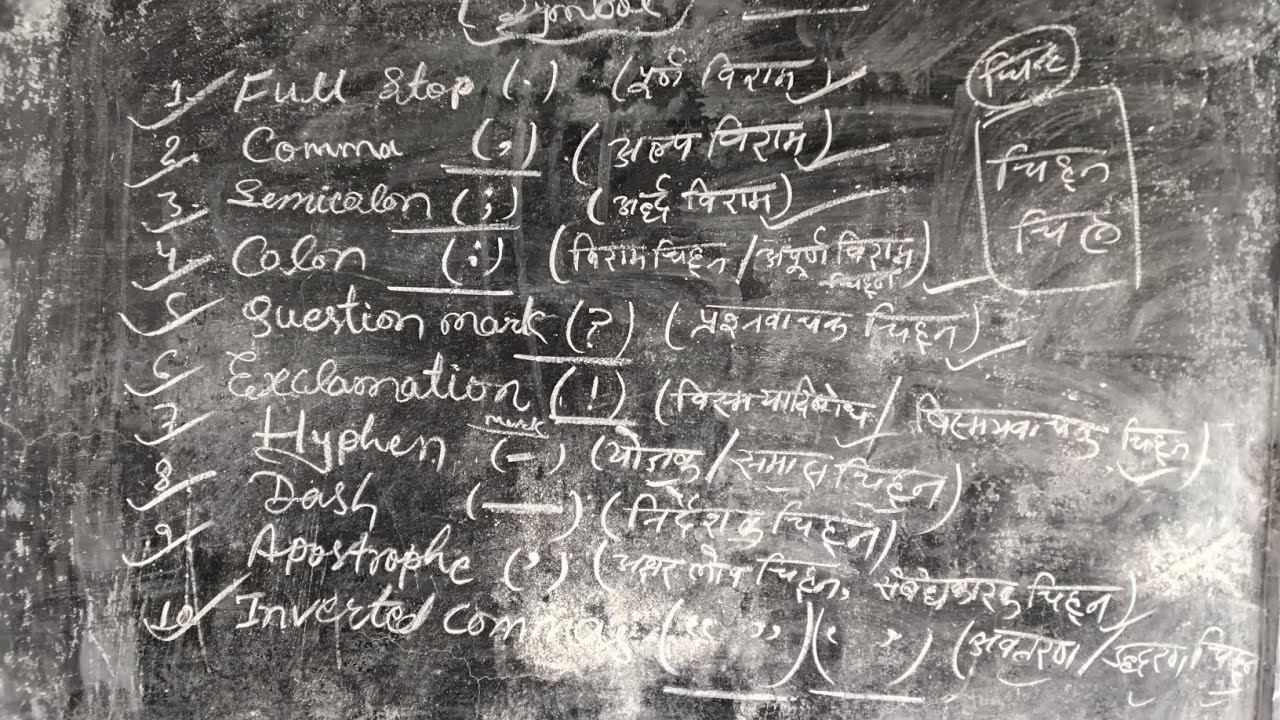 Symbol
1. Full Stop (.) (पूर्ण विराम)
2. Comma (,) (अल्प विराम)
3. Semicolon (;) (अर्द्ध विराम)
4. Colon (:) (विराम चिह्न / अपूर्ण विराम चिह्न)
5. Question mark (?) (प्रश्नवाचक चिह्न)
6. Exclamation mark (!) (विस्मयादिबोध / विस्मयवाचक चिह्न)
7. Hyphen (-) (योजक / समास चिह्न)
8. Dash (—) (निर्देशक चिह्न)
9. Apostrophe (’) (अक्षर लोप चिह्न, संबंधकारक चिह्न)
10. Inverted Commas (“ ”) (‘ ’) (अवतरण / उद्धरण चिह्न
चिन्ह
चिह्न